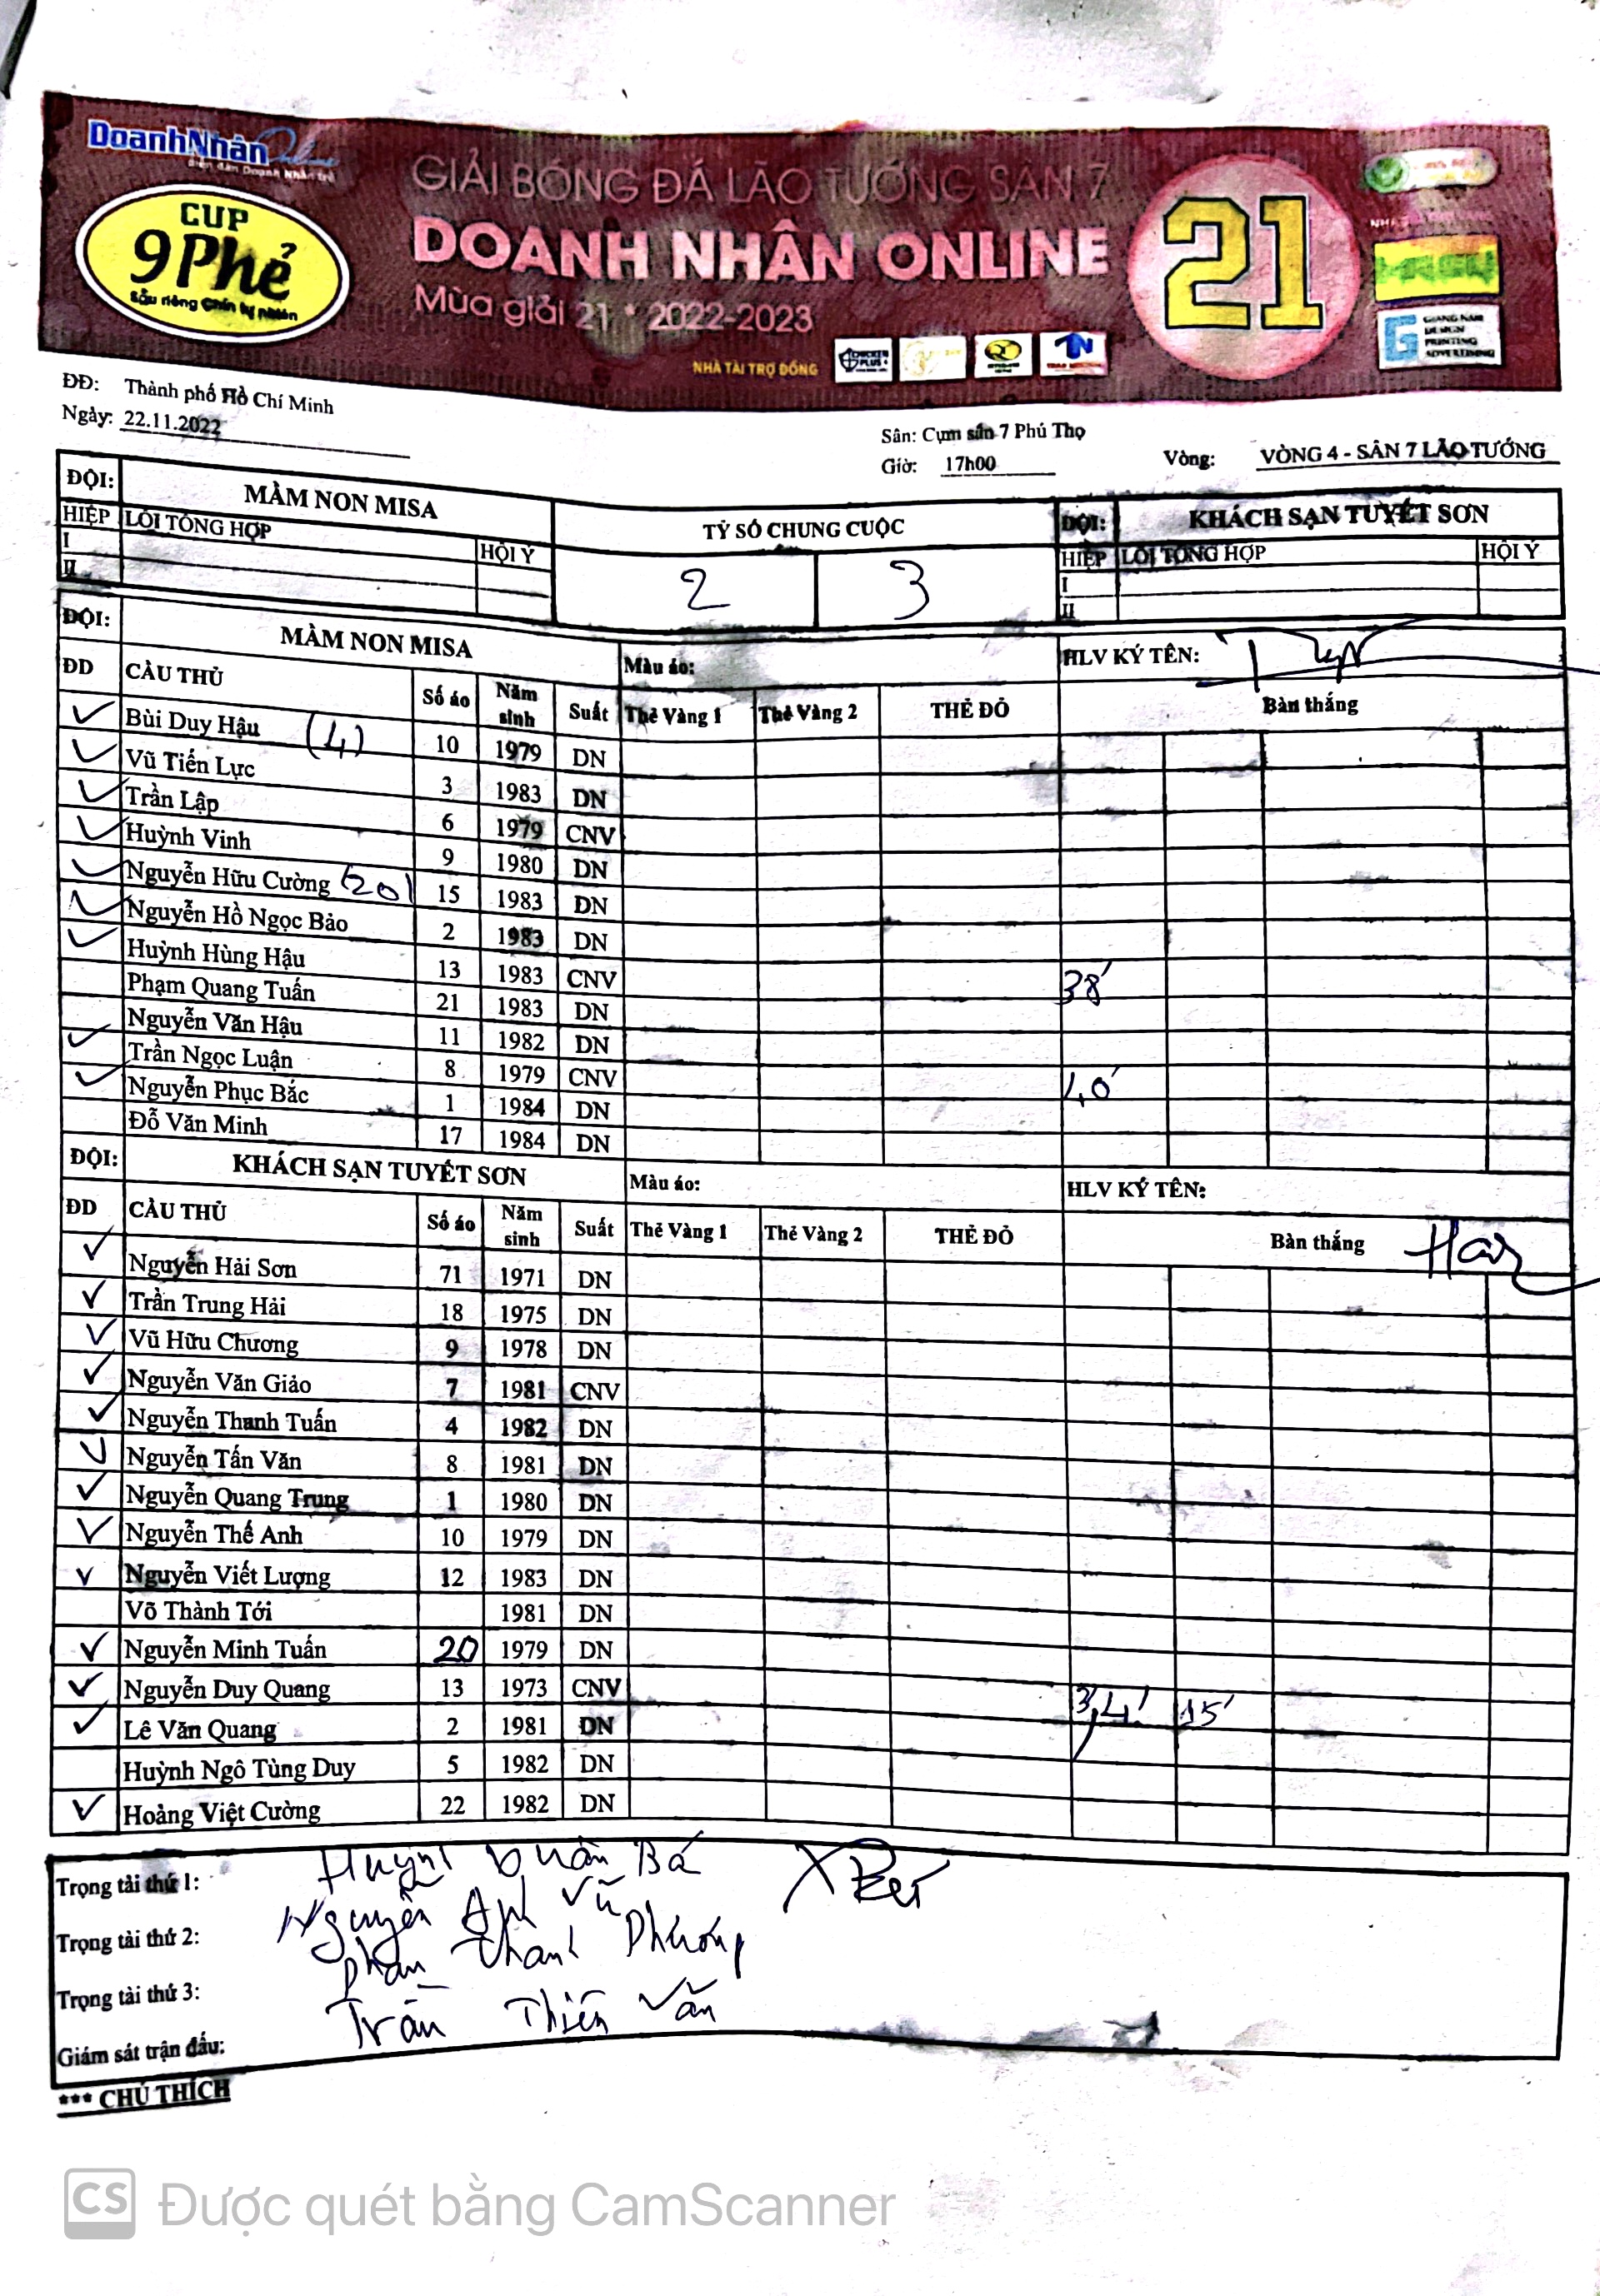 DoanhNhân Online
Diễn đàn Doanh Nhân trẻ
CUP
9 Phẻ
Sầu riêng Chín tự nhiên
GIẢI BÓNG ĐÁ LÃO TƯỚNG SÂN 7
DOANH NHÂN ONLINE
Mùa giải 21 * 2022-2023
21
NHÀ TÀI TRỢ ĐỒNG
CHICKEN PLUS
TN
GIANG NAM
DESIGN
PRINTING
ADVERTISING
ĐĐ: Thành phố Hồ Chí Minh
Ngày: 22.11.2022
Sân: Cụm sân 7 Phú Thọ
Giờ: 17h00
Vòng: VÒNG 4 - SÂN 7 LÃO TƯỚNG
ĐỘI: MẦM NON MISA TỶ SỐ CHUNG CUỘC ĐỘI: KHÁCH SẠN TUYẾT SƠN
HIỆP LỖI TỔNG HỢP HỘI Ý 2 3 HIỆP LỖI TỔNG HỢP HỘI Ý
I I
II II
ĐỘI: MẦM NON MISA Màu áo: HLV KÝ TÊN:
ĐD CẦU THỦ Số áo Năm sinh Suất Thẻ Vàng 1 Thẻ Vàng 2 THẺ ĐỎ Bàn thắng
Bùi Duy Hậu (4) 10 1979 DN
Vũ Tiến Lực 3 1983 DN
Trần Lập 6 1979 CNV
Huỳnh Vinh 9 1980 DN
Nguyễn Hữu Cường (20) 15 1983 DN
Nguyễn Hồ Ngọc Bảo 2 1983 DN
Huỳnh Hùng Hậu 13 1983 CNV 38'
Phạm Quang Tuấn 21 1983 DN
Nguyễn Văn Hậu 11 1982 DN
Trần Ngọc Luận 8 1979 CNV 40'
Nguyễn Phục Bắc 1 1984 DN
Đỗ Văn Minh 17 1984 DN
ĐỘI: KHÁCH SẠN TUYẾT SƠN Màu áo: HLV KÝ TÊN:
ĐD CẦU THỦ Số áo Năm sinh Suất Thẻ Vàng 1 Thẻ Vàng 2 THẺ ĐỎ Bàn thắng
Nguyễn Hải Sơn 71 1971 DN
Trần Trung Hải 18 1975 DN
Vũ Hữu Chương 9 1978 DN
Nguyễn Văn Giảo 7 1981 CNV
Nguyễn Thanh Tuấn 4 1982 DN
Nguyễn Tấn Văn 8 1981 DN
Nguyễn Quang Trung 1 1980 DN
Nguyễn Thế Anh 10 1979 DN
Nguyễn Viết Lượng 12 1983 DN
Võ Thành Tới 1981 DN
Nguyễn Minh Tuấn 20 1979 DN
Nguyễn Duy Quang 13 1973 CNV 3,4' 15'
Lê Văn Quang 2 1981 DN
Huỳnh Ngô Tùng Duy 5 1982 DN
Hoảng Việt Cường 22 1982 DN
Trọng tài thứ 1: Huỳnh Xuân Bá
Trọng tài thứ 2: Nguyễn Anh Vũ
Trọng tài thứ 3: Phan Thanh Phương
Giám sát trận đấu: Trần Thiên Văn
*** CHÚ THÍCH
CS Được quét bằng CamScanner